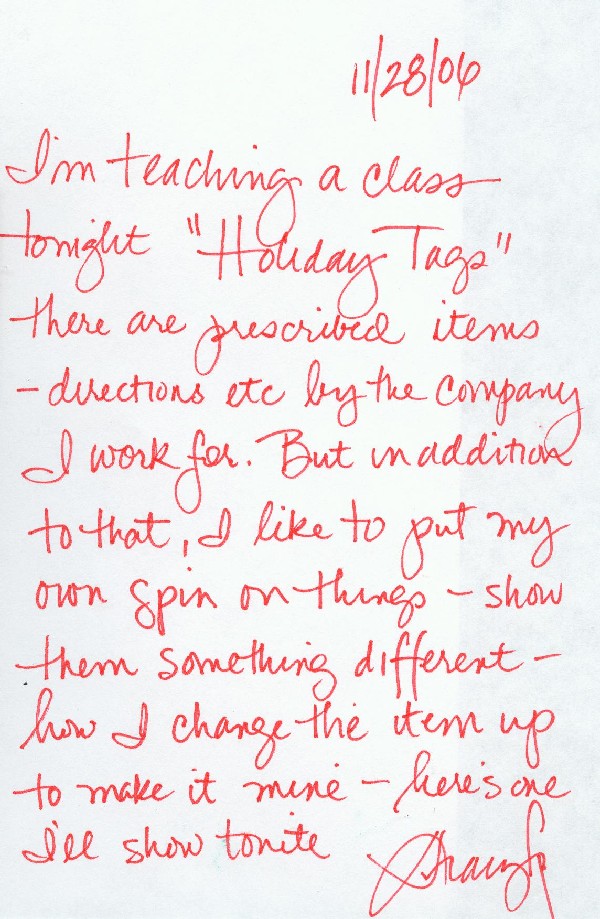 11/28/06
I'm teaching a class
tonight "Holiday Tags"
there are prescribed items
- directions etc by the company
I work for. But in addition
to that, I like to put my
own spin on things - show
them something different -
how I change the item up
to make it mine - here's one
I'll show tonite